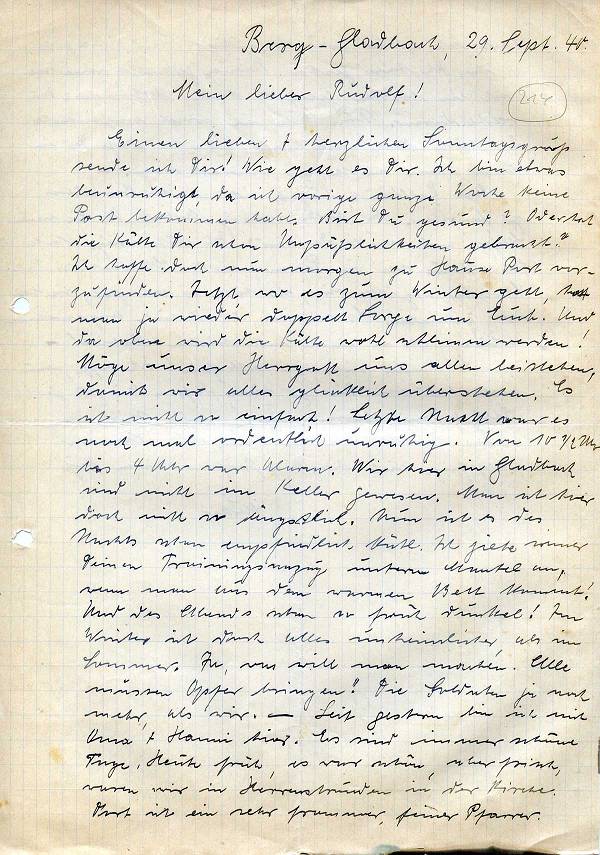 Berg-Gladbach, 29. Sept. 40.
Mein lieber Rudolf!
Einen lieben & herzlichen Sonntagsgruß
sende ich Dir! Wie geht es Dir. Ich bin etwas
beunruhigt, da ich vorige ganze Woche keine
Post bekommen habe. Bist Du gesund? Oder hat
die Kälte Dir schon Unpäßlichkeiten gebracht?
Ich hoffe doch nun morgen zu Hause Post vor-
zufinden. Jetzt, wo es zum Winter geht, hat
man ja wieder doppelt Sorge um Euch. Und
da oben wird die Kälte wohl schlimm werden!
Möge unser Herrgott uns allen beistehen,
damit wir alles glücklich überstehen. Es
ist nicht so einfach! Letzte Nacht war es
noch mal ordentlich unruhig. Von 10 1/2 Uhr
bis 4 Uhr war Alarm. Wir hier in Gladbach
sind nicht im Keller gewesen. Man ist hier
doch nicht so ängstlich. Nun ist es des
Nachts schon empfindlich kühl. Ich ziehe immer
Deinen Trainingsanzug unterm Mantel an,
wenn man aus dem warmen Bett kommt!
Und des Abends schon so früh dunkel! Im
Winter ist doch alles unheimlicher, als im
Sommer. Ja, was will man machen. Alle
müssen Opfer bringen!! Die Soldaten ja noch
mehr, als wir. — Seit gestern bin ich mit
Oma & Hanni hier. Es sind immer schöne
Tage. Heute früh, es war schön, aber frisch,
waren wir in Herrenstrunden in der Kirche.
Dort ist ein sehr frommer, feiner Pfarrer.